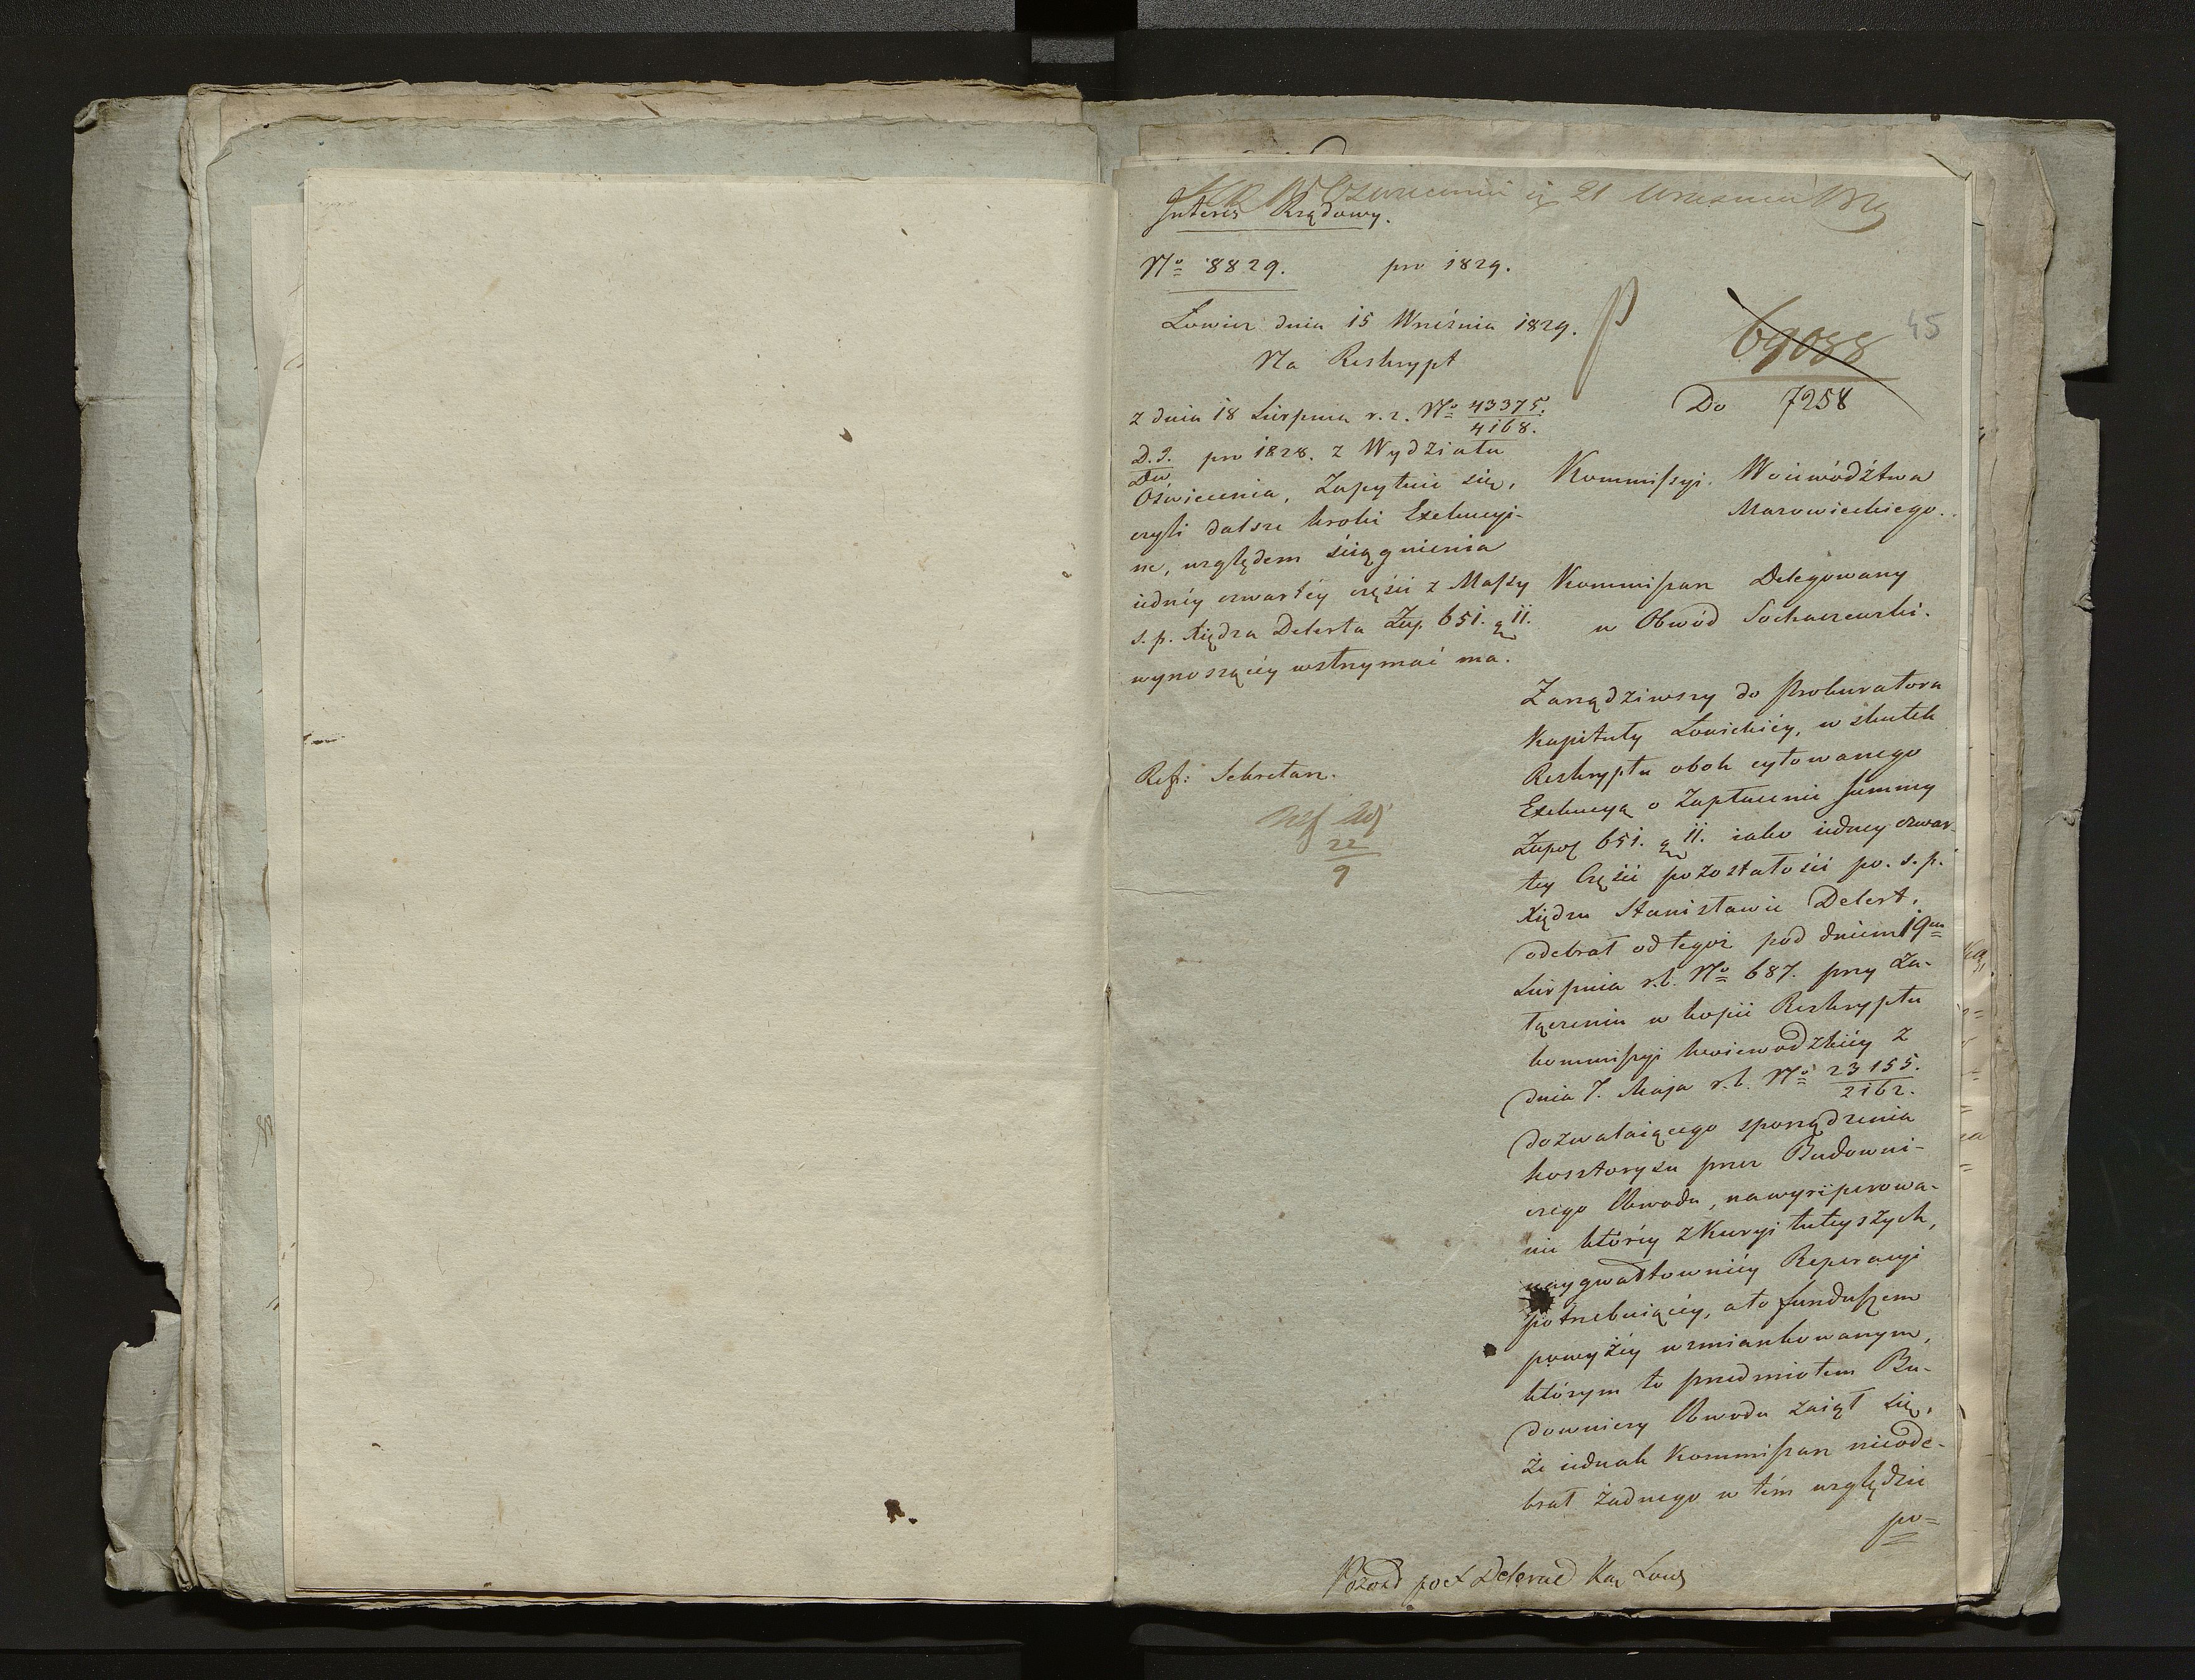 21 Września 1829
Interes Rządowy.
No 8829. pro 1829.
Łowicz dnia 15 Września 1829.
45
69088
Na Reskrypt
Do 7258
z dnia 18 Sierpnia r. z. No 43375.
4168.
D. I. pro 1828. z Wydziału
Oświecenia, Zapytuie się,
czyli dalsze kroki Exekucyi-
ne, względem ściągnienia
iednéy czwartéy części z Massy
s. p. Xiędza Delerta Złp. 651. g 11.
wynoszącéy wstrzymać ma.
Kommissyi Woiewództwa
Mazowieckiego.
Kommissarz Delegowany
w Obwód Sochaczewski.
Ref: Sekretarz.
22
9
Zarządziwszy do Prokuratora
Kapituły Łowickiéy, w skutek
Reskryptu obok cytowanego
Exekucyą o Zapłacenie Summy
Złp 651. g 11. iako iedney czwar-
tey Części pozostałości po. s. p.
Xiędzu Stanisławie Delert,
odebrał od tegoż pod dniem 19m
Sierpnia r. b. No 687. przy Za-
łączeniu w kopii Reskryptu
kommissyi Woiewodzkiéy z
dnia 7. Maja r. b. No 23155.
2162.
dozwalaiącego sporządzenia
kosztorysu przez Budowni-
czego Obwodu, na wyreperowa-
nie któréy z Kuryi tuteyszych,
naygwałtownięy Reperacyi
potrzebuiącéy, a to funduszem
powyżéy wzmiankowanym,
którym to przedmiotem Bu-
downiczy Obwodu zaiął się,
że iednak Kommissarz nieode-
brał żadnego w tém względzie
po=